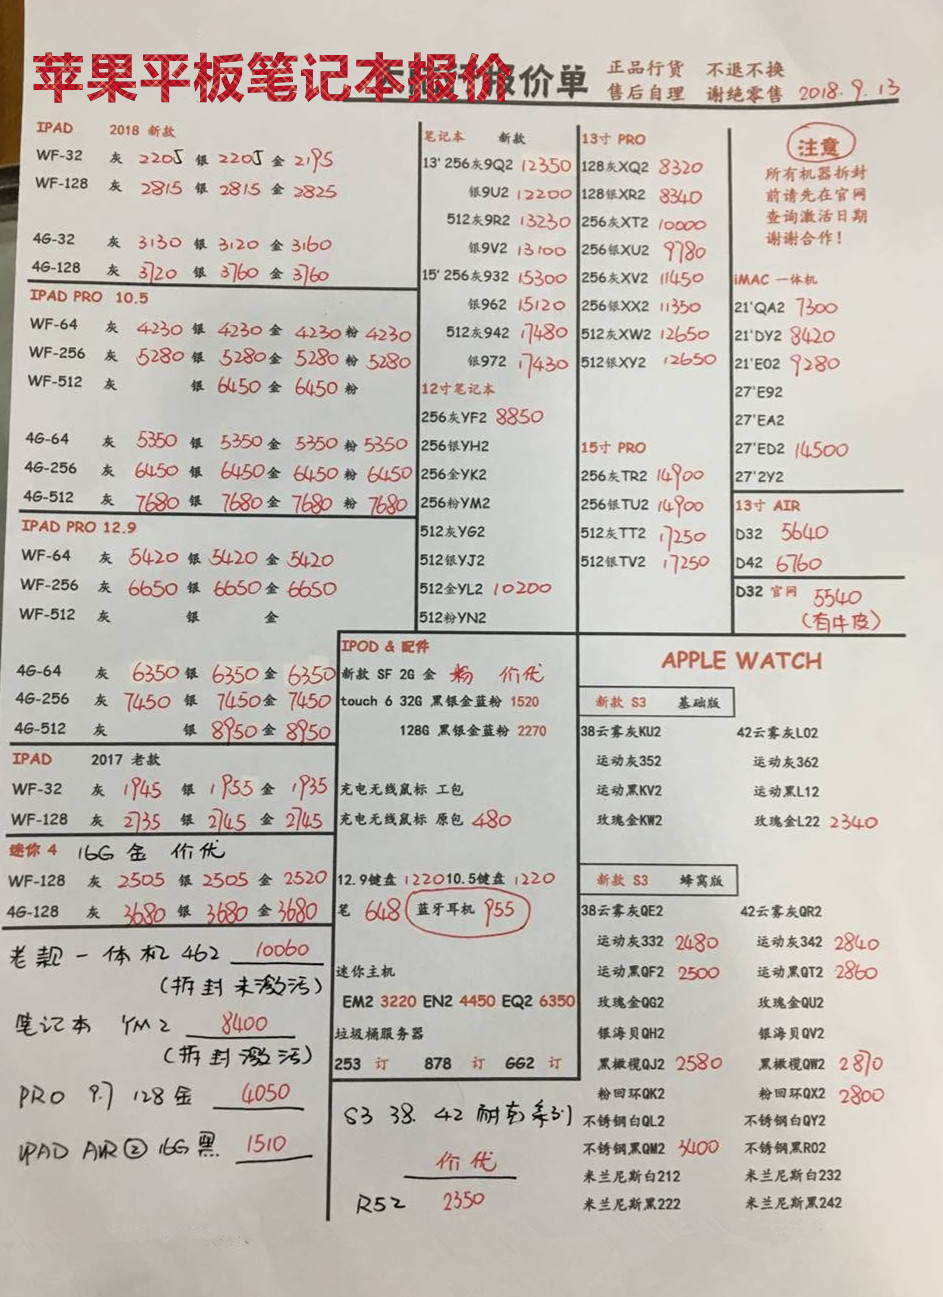 苹果平板笔记本报价
报价单
正品行货 不退不换
售后自理 谢绝零售 2018.9.13
IPAD 2018 新款
WF-32 灰 2205 银 2205 金 2195
WF-128 灰 2815 银 2815 金 2825
4G-32 灰 3130 银 3120 金 3160
4G-128 灰 3720 银 3760 金 3760
IPAD PRO 10.5
WF-64 灰 4230 银 4230 金 4230 粉 4230
WF-256 灰 5280 银 5280 金 5280 粉 5280
WF-512 灰 银 6450 金 6450 粉
4G-64 灰 5350 银 5350 金 5350 粉 5350
4G-256 灰 6450 银 6450 金 6450 粉 6450
4G-512 灰 7680 银 7680 金 7680 粉 7680
IPAD PRO 12.9
WF-64 灰 5420 银 5420 金 5420
WF-256 灰 6650 银 6650 金 6650
WF-512 灰 银 金
4G-64 灰 6350 银 6350 金 6350
4G-256 灰 7450 银 7450 金 7450
4G-512 灰 银 8950 金 8950
IPAD 2017 老款
WF-32 灰 1945 银 1955 金 1935
WF-128 灰 2735 银 2745 金 2745
迷你 4 16G 金 价优
WF-128 灰 2505 银 2505 金 2520
4G-128 灰 3680 银 3680 金 3680
老靓一体机 462 10060
(拆封未激活)
笔记本 YM2 8400
(拆封激活)
PRO 9.7 128金 4050
IPAD AIR② 16G 黑 1510
笔记本 新款
13' 256灰9Q2 12350
银9U2 12200
512灰9R2 13230
银9V2 13100
15' 256灰932 15300
银962 15120
512灰942 17480
银972 17430
12寸笔记本
256灰YF2 8850
256银YH2
256金YK2
256粉YM2
512灰YG2
512银YJ2
512金YL2 10200
512粉YN2
13寸 PRO
128灰XQ2 8320
128银XR2 8340
256灰XT2 10000
256银XU2 9780
256灰XV2 11450
256银XX2 11350
512灰XW2 12650
512银XY2 12650
15寸 PRO
256灰TR2 14900
256银TU2 14900
512灰TT2 17250
512银TV2 17250
注意
所有机器拆封
前请先在官网
查询激活日期
谢谢合作!
iMAC 一体机
21'QA2 7300
21'DY2 8420
21'E02 9280
27'E92
27'EA2
27'ED2 14500
27'2Y2
13寸 AIR
D32 5640
D42 6760
D32 官网 5540
(有牛皮)
IPOD & 配件
新款 SF 2G 金 粉 价优
touch 6 32G 黑银金蓝粉 1520
128G 黑银金蓝粉 2270
充电无线鼠标 工包
充电无线鼠标 原包 480
12.9键盘 1220 10.5键盘 1220
笔 648 蓝牙耳机 955
迷你主机
EM2 3220 EN2 4450 EQ2 6350
垃圾桶服务器
253 订 878 订 GG2 订
S3 38. 42 耐克系列
价优
R52 2350
APPLE WATCH
新款 S3 基础版
38云雾灰KU2 42云雾灰L02
运动灰352 运动灰362
运动黑KV2 运动黑L12
玫瑰金KW2 玫瑰金L22 2340
新款 S3 蜂窝版
38云雾灰QE2 42云雾灰QR2
运动灰332 2480 运动灰342 2840
运动黑QF2 2500 运动黑QT2 2860
玫瑰金QG2 玫瑰金QU2
银海贝QH2 银海贝QV2
黑橄榄QJ2 2580 黑橄榄QW2 2870
粉回环QK2 粉回环QX2 2800
不锈钢白QL2 不锈钢白QY2
不锈钢黑QM2 3400 不锈钢黑R02
米兰尼斯白212 米兰尼斯白232
米兰尼斯黑222 米兰尼斯黑242